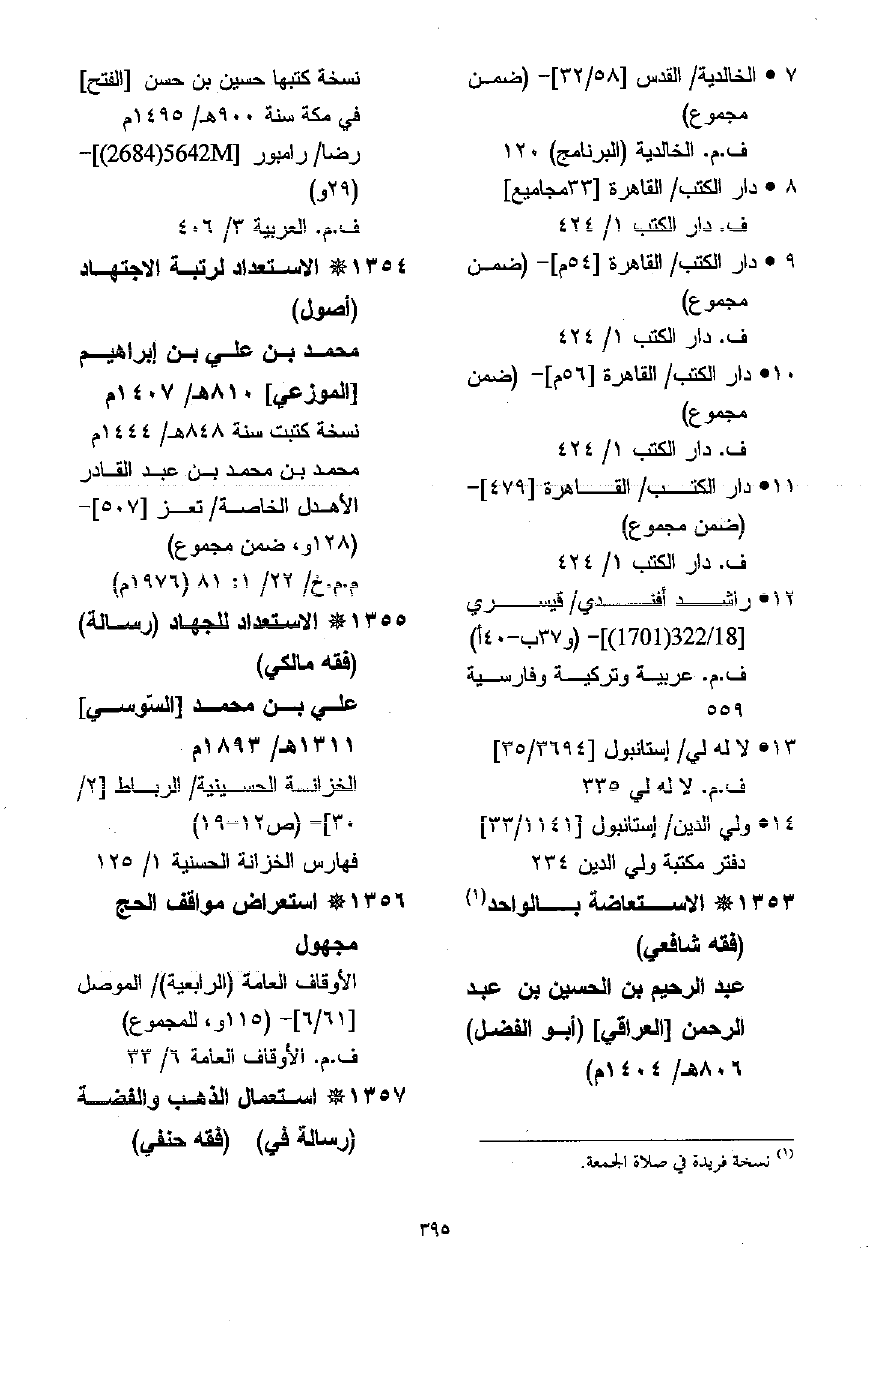 ٧ • الخالدية/ القدس [٣٢/٥٨]- (ضمن
مجموع)
ف.م. الخالدية (البرنامج) ١٢٠
٨ • دار الكتب/ القاهرة [٣٣مجاميع]
ف. دار الكتب ١/ ٤٢٤
٩ • دار الكتب/ القاهرة [٥٤م]- (ضمن
مجموع)
ف. دار الكتب ١/ ٤٢٤
١٠• دار الكتب/ القاهرة [٥٦م]- (ضمن
مجموع)
ف. دار الكتب ١/ ٤٢٤
١١• دار الكتب/ القاهرة [٤٧٩]-
(ضمن مجموع)
ف. دار الكتب ١/ ٤٢٤
١٢• راشد أفندي/ قيسري
[322/18(1701)]- (و٣٧ب-٤٠أ)
ف.م. عربية وتركية وفارسية
٥٥٩
١٣• لا له لي/ إستانبول [٣٥/٣٦٩٤]
ف.م. لا له لي ٣٣٥
١٤• ولي الدين/ إستانبول [٣٣/١١٤١]
دفتر مكتبة ولي الدين ٢٣٤
١٣٥٣ ❋ الاستعاضة بالواحد(١)
(فقه شافعي)
عبد الرحيم بن الحسين بن عبد
الرحمن [العراقي] (أبو الفضل)
٨٠٦هـ/ ١٤٠٤م)
(١) نسخة فريدة في صلاة الجمعة.
نسخة كتبها حسين بن حسن [الفتح]
في مكة سنة ٩٠٠هـ/ ١٤٩٥م
رضا/ رامبور [5642M(2684)]-
(٢٩و)
ف.م. العربية ٣/ ٤٠٦
١٣٥٤ ❋ الاستعداد لرتبة الاجتهاد
(أصول)
محمد بن علي بن إبراهيم
[الموزعي] ٨١٠هـ/ ١٤٠٧م
نسخة كتبت سنة ٨٤٨هـ/ ١٤٤٤م
محمد بن محمد بن عبد القادر
الأهدل الخاصة/ تعز [٥٠٧]-
(١٢٨و، ضمن مجموع)
م.م.خ/ ٢٢/ ١: ٨١ (١٩٧٦م)
١٣٥٥ ❋ الاستعداد للجهاد (رسالة)
(فقه مالكي)
علي بن محمد [السّوسي]
١٣١١هـ/ ١٨٩٣م
الخزانة الحسينية/ الرباط [٢/
٣٠]- (ص١٢-١٩)
فهارس الخزانة الحسنية ١/ ١٢٥
١٣٥٦ ❋ استعراض مواقف الحج
مجهول
الأوقاف العامة (الرابعية)/ الموصل
[٦/٦١]- (١١٥و، للمجموع)
ف.م. الأوقاف العامة ٦/ ٣٣
١٣٥٧ ❋ استعمال الذهب والفضة
(رسالة في) (فقه حنفي)
٣٩٥